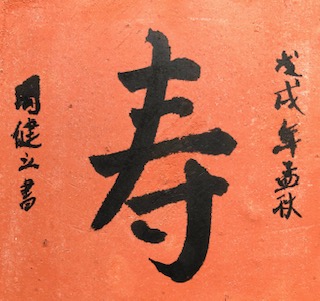 戊戌年孟秋
寿
周健立書